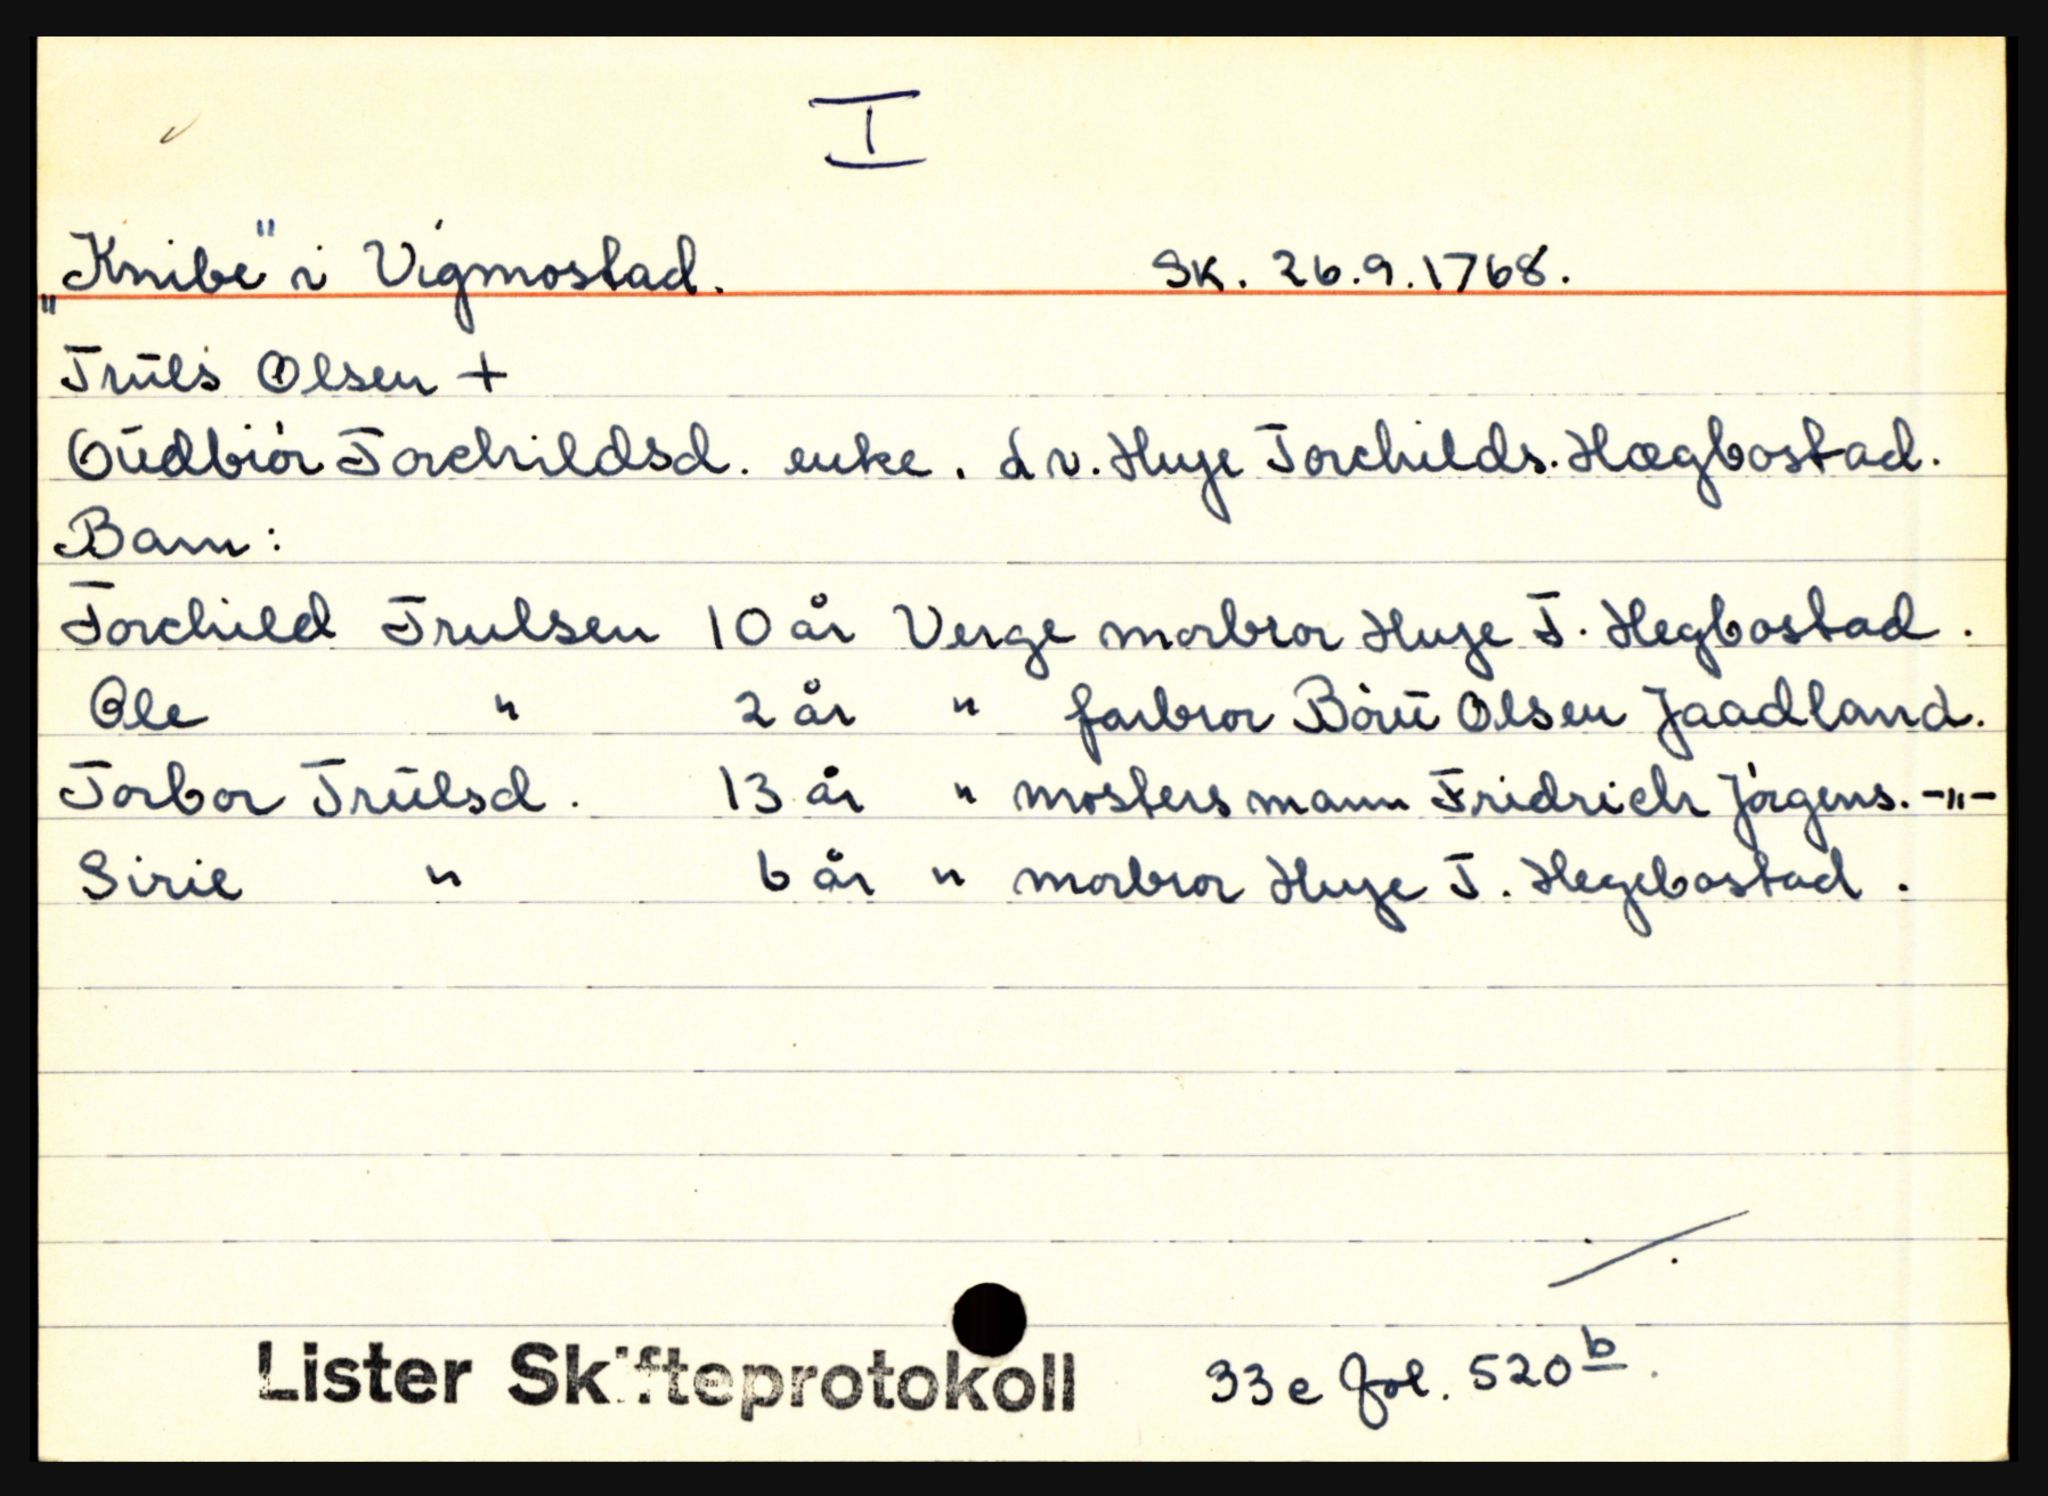 I
"Knibe" i Vigmostad. Sk. 26.9.1768.
Trūls Olsen +
Gūdbiør Torchildsd. enke. d v. Huje Torchilds. Hægbostad.
Barn:
Torchild Trulsen 10 år Verge morbror Huje T. Hegbostad.
Ole " 2 år " farbror Børū Olsen Jaadland.
Torbor Trūlsd. 13 år " mosters mann Fridrich Jørgens. -"-
Sirie " 6 år " morbror Huje T. Hegebostad.
Lister Skifteprotokoll 33 c fol. 520 b.